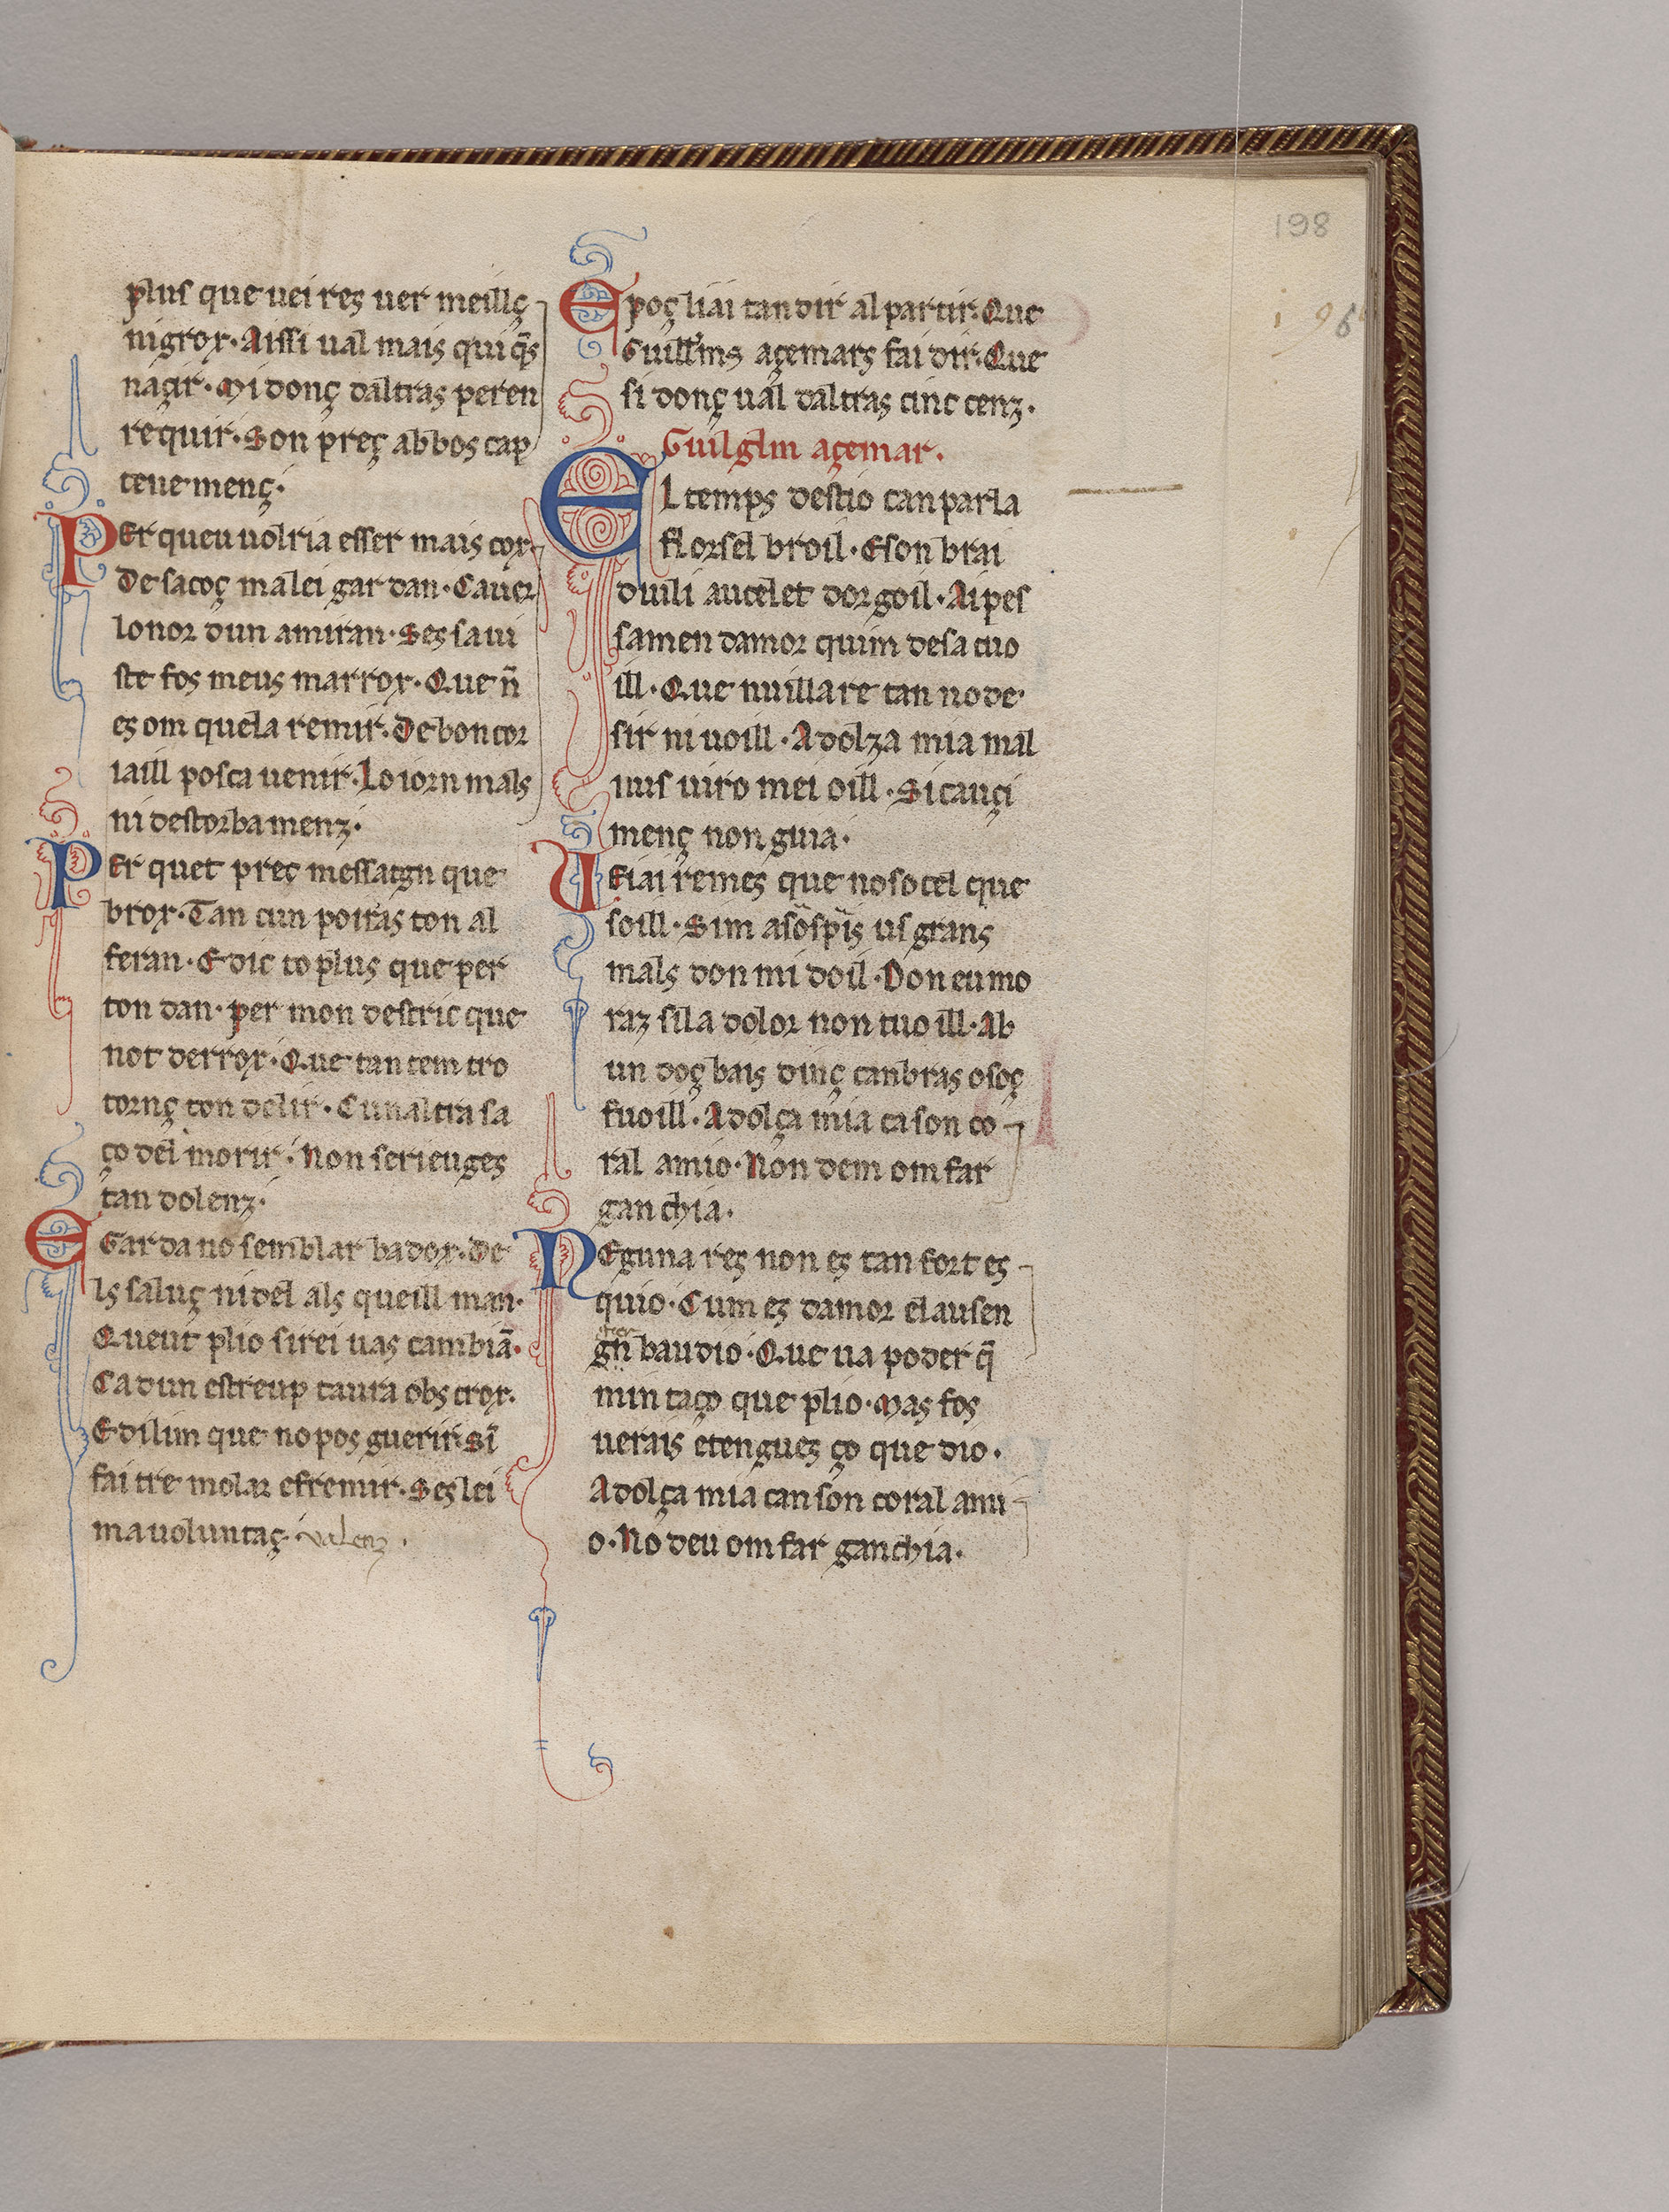 198
196
plus que uei reȝ uer meillç
nigrox· Aissi ual mais qui q̄s
naçir· Mi donç daltras per en
requir· Son preç ab bos cap
tenemenç·
PEr queu uolria esser mais cox
De sa coç ma lei gardan· Cauer
lonor dun amiran· Ses sa ui
ste fos meus marrox· Que n̄
es om quela remir· De bon cor
iaill posca uenir· Lo iorn mals
ni destorbamenz·
PEr quet prec messatgn que
brox· Tan cun poiras ton al
feran· E dic to plus que per
ton dan· per mon destric que
not derrox· Que tan tem tro
tornç ton delir· Cunaltra sa
ço del morir· Non seri eu ges
tan dolenz·
EGarda no semblar badox· De
ls saluç ni del als queill man·
Queut plio sirei uas cambiā·
Cadun estreup taura obs crox·
E dilim que no pos guerir· Si
fai tremolar e fremir· Ses lei
ma uoluntaç· ualenz·
E poç li ai tan dir al partir· Que
Guillms açemars fai dir· Que
si donç ual daltras cinc cenz·
Guilglm açemar·
EL temps destio can par la
flors el broil· E son brai
duili aucelet dorgoil· Ai pes
samen damor quim desa cuo
ill· Que nuilla re tan no de
sir ni uoill· A dolza mia mal
uus uiro mei oill· Si cauçi
menç non guia·
UEiaire mes que no so cel que
soill· Sim a sospis us grans
mals don mi doil· Don eu mo
raz si la dolor non cuoill· Ab
un doç bais dinç canbras osoç
fuoill· A dolça mia cason co
ral amio· Non dem om far
ganchia·
NEguna res non es tan fort es
quio· Cum es damor el ausen
gn̄ baudio· Que ua poder q̄
min taço que plio· Mas fos
uerais e tengues ço que dio·
A dolça mia canson coral ami
o· No deu om far ganchia·